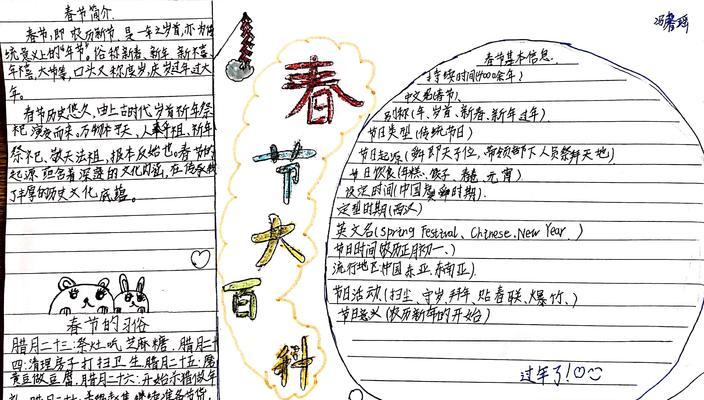 春节简介.
春节,即农历新节,是一年之岁首,亦为传
统意义上的"年节"。俗称新春、新年、新禧、
年禧、大节等,口头又称度岁、庆岁、过年过大
年。
春节历史悠久,由上古时代岁首祈年祭
祀演变而来。万物本乎天、人本乎祖,祈年
祭祀、敬天法祖,报本反始也。春节的
起源蕴含着深邃的文化内涵,在传承
了丰厚的历史文化底蕴。
春节的习俗
腊月二十三:祭灶 吃芝麻糖, 腊月二十
四:清理房子打扫卫生腊月二十五:磨
黄豆做豆腐,腊月二十六:开始
春
节
大
百
科
春节基本信息.
持续时间(4000余年)
中文名(春节)
别称(年、岁首、新春、新年过年)
节日类型(传统节日)
节日起源(舜即天子位,带领部下人员祭拜天地)
节日饮食(年糕、饺子、春卷、元宵)
设定时间(中国虞舜时期).
定型时期(西汉)
英文名(Spring Festival、Chinese.New Year、)
节日时间 农历正月初一、)
流行地区 中国 东亚、东南亚).
节日活动(扫尘、守岁、拜年、贴春联、爆竹、)
节日意义(农历新年的开始)
过年了!